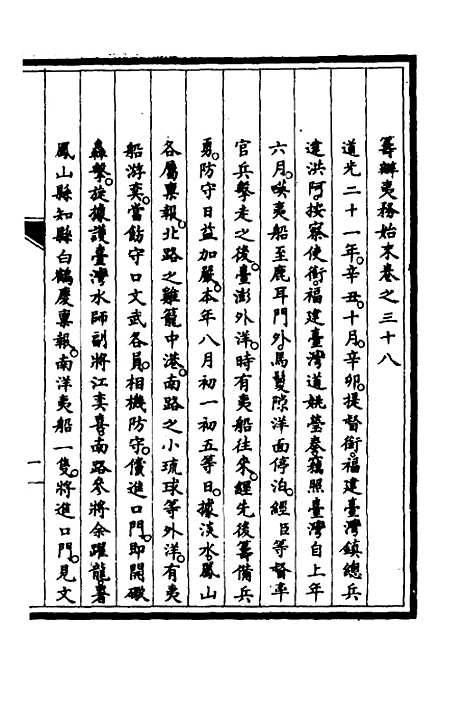 籌辦夷務始末卷之三十八
道光二十一年。辛丑。十月。辛卯。提督銜。福建臺灣鎮總兵
達洪阿。按察使銜。福建臺灣道姚瑩奏。竊照臺灣自上年
六月。㗸夷船至鹿耳門外馬鬃隙洋面停泊。經臣等督率
官兵擊走之後。臺澎外洋。時有夷船往來。經先後籌備兵
勇。防守日益加嚴。本年八月初一初五等日。據淡水。鳳山
各屬稟報。北路之雞籠中港。南路之小琉球等外洋。有夷
船游奕。當飭守口文武各員。相機防守。儻進口門。即開礮
轟擊。旋據護臺灣水師副將江奕喜。南路參將余躍龍。署
鳳山縣知縣白鶴慶稟報。南洋夷船一隻。將進口門。見文
一